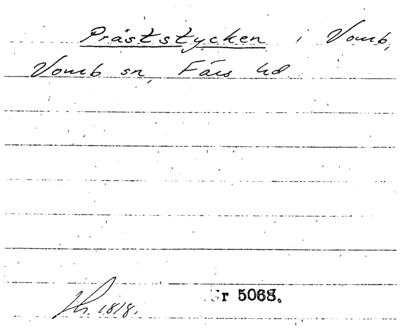 Präststycken i Vomb,
Vomb sn, Färs hd
1818.
Nr 5068.